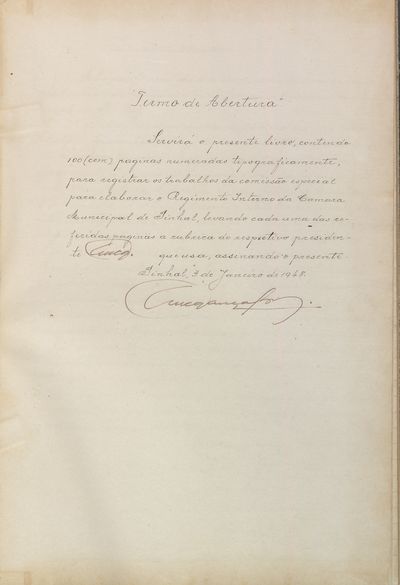 "Termo de Abertura"
Servirá o presente livro, contendo
100 (cem) paginas numeradas tipograficamente,
para registrar os trabalhos da comissão especial
para elaborar o Regimento Interno da Camara
Municipal de Pinhal, levando cada uma das re-
feridas paginas a rubrica do respetivo presiden-
te que usa, assinando o presente.
Pinhal, 3 de Janeiro de 1948.